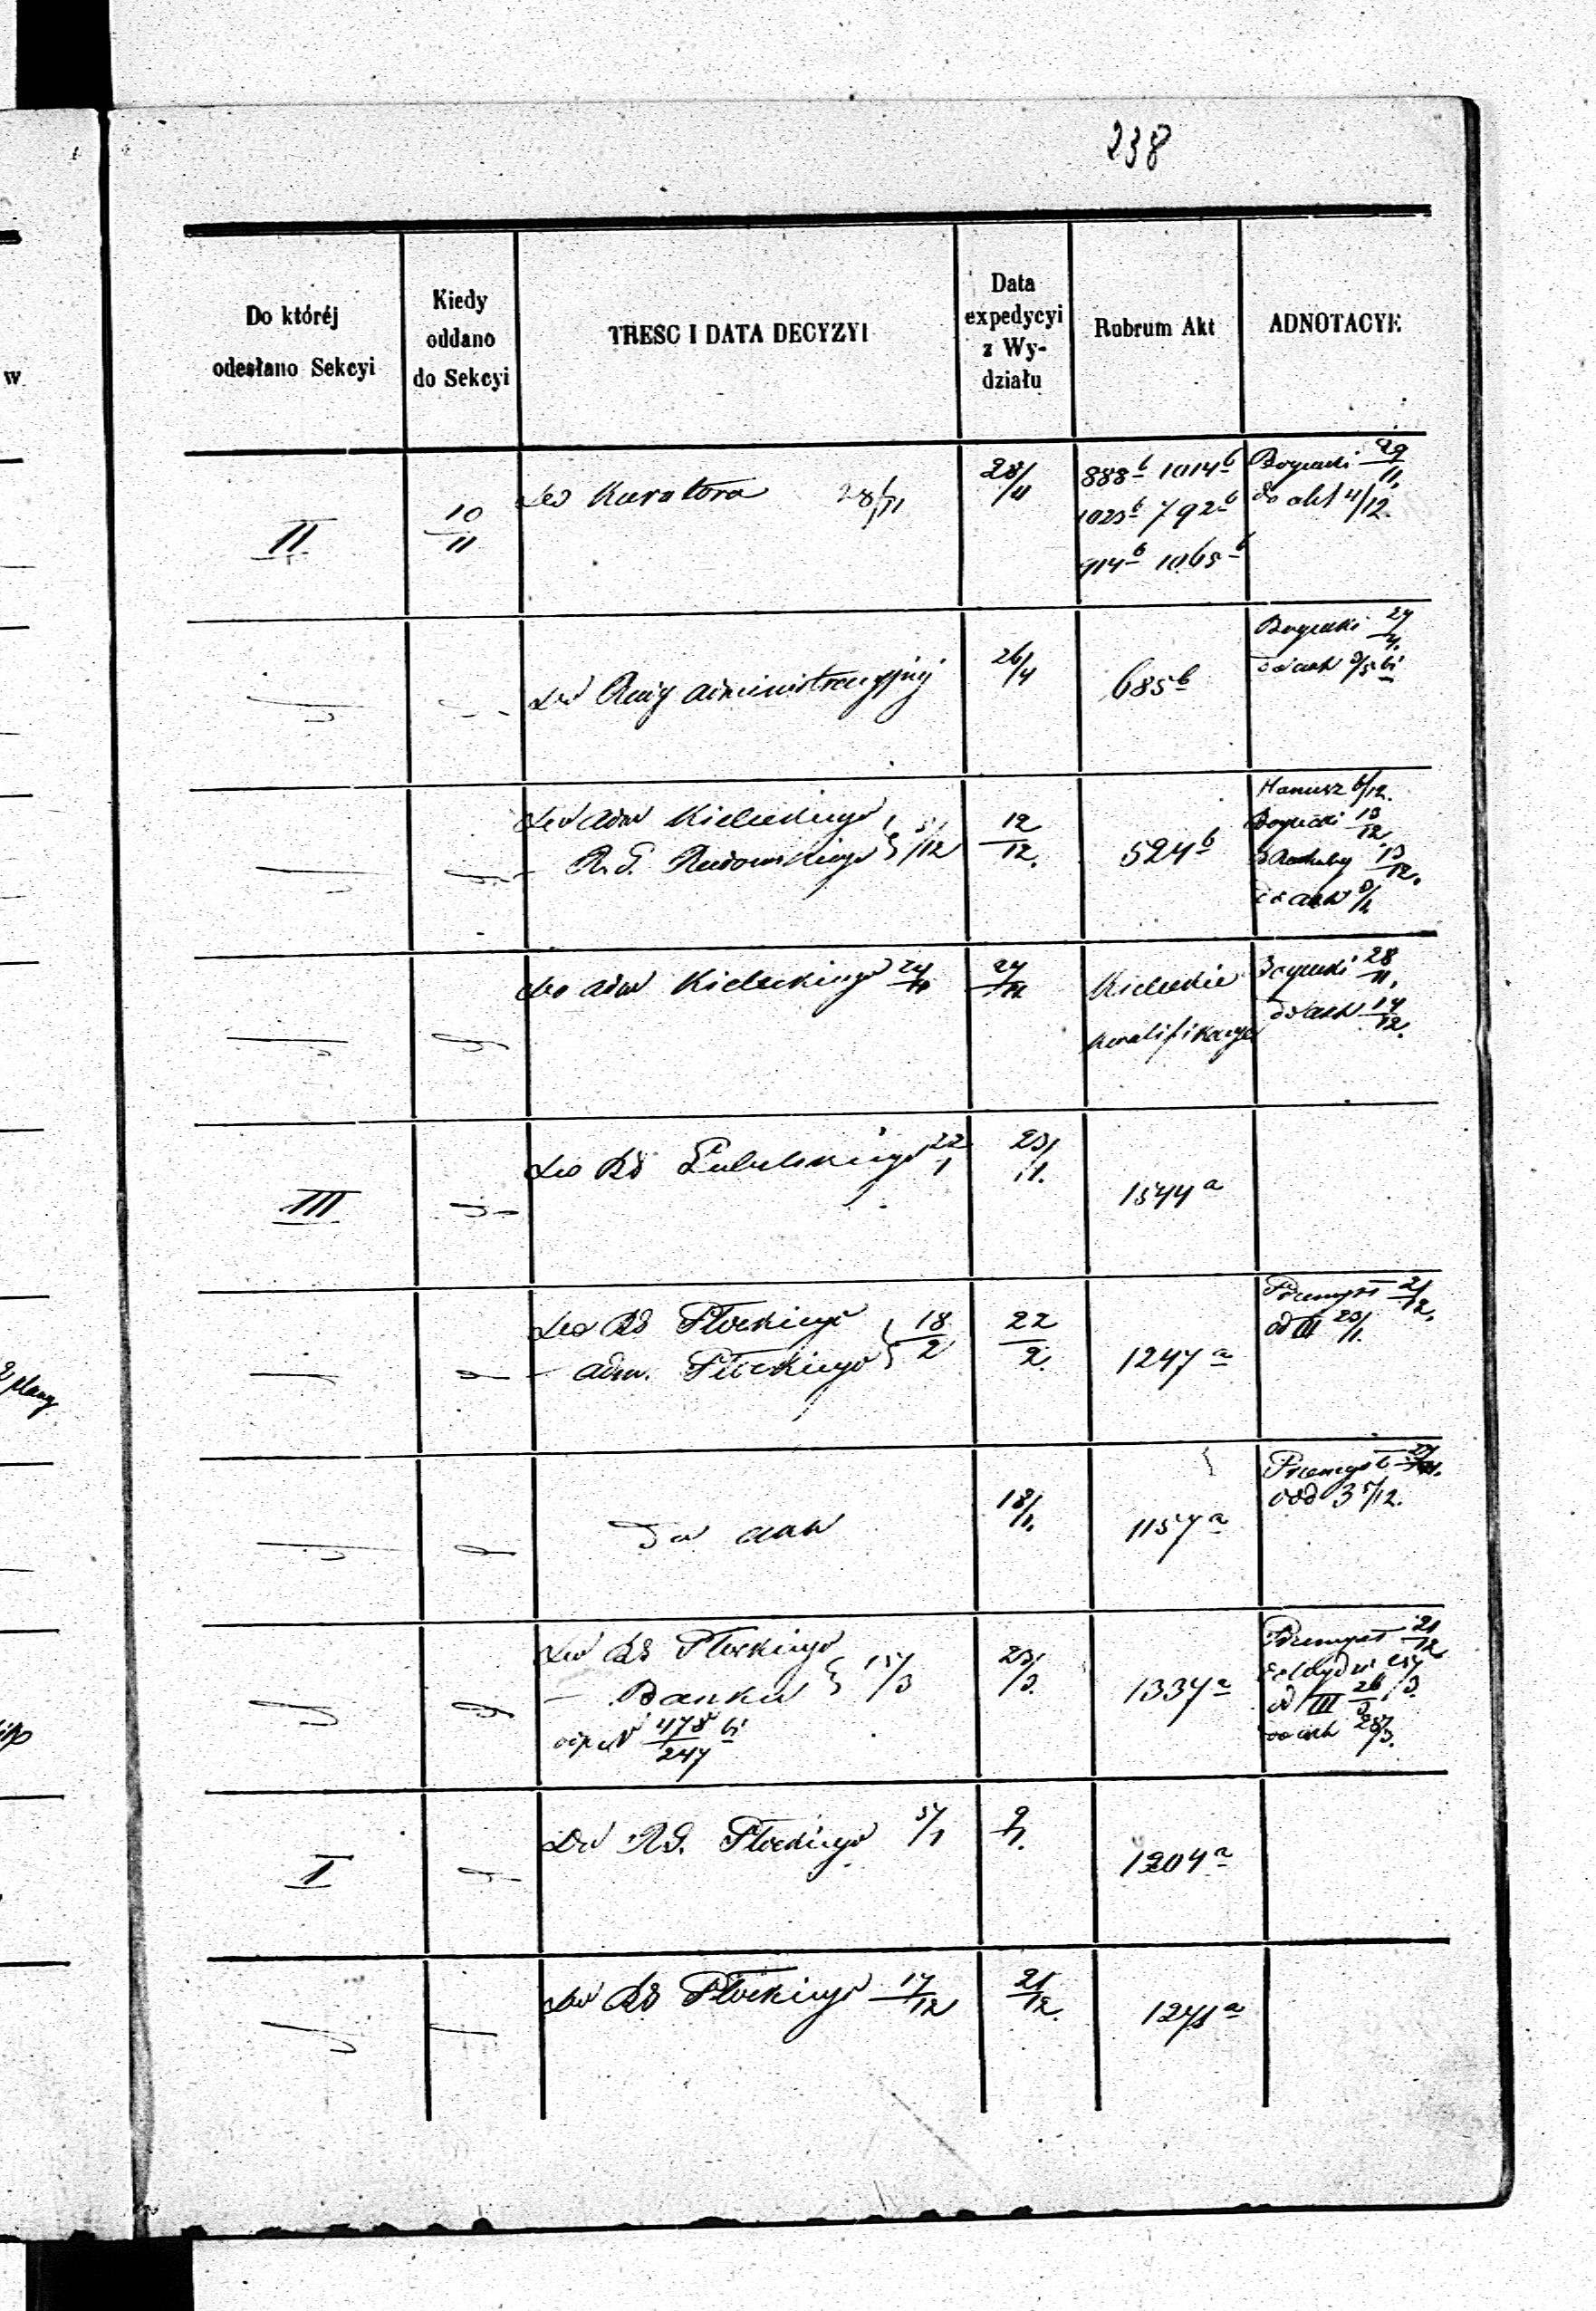 238
Do któréj
odesłano Sekcyi
Kiedy
oddano
do Sekcyi
TRESC I DATA DECYZYI
Data
expedycyi
z Wy-
działu
Rubrum Akt
ADNOTACYE
II
10/11
Do Kuratora 28/11
28/11
888 b 1014 b
1025 b 792 b
914 b 1065 b
29/11
do akt 4/12.
Do Rady administracyjnej
26/4
685 b
27/4.
do akt
Do adm Kieleckiego
- R. G. Radomskiego /12
12/12.
524 b
Haniusz 6/12.
13/12.
13/12.
do akt
Do adm Kieleckiego 27/11
27/11
Kieleckie
kwalifikacye
28/11.
do akt 14/12.
III
Do RG Lubelskiego 22/1
23/1.
1544 a
Do RG Płockiego
- adm. Płockiego } 18/2
22/2.
1247 a
Przemysł 21/12.
od III 23/1.
Do akt
18/1.
1157 a
Przemysł
od 3 5/12.
Do RG Płockiego
- Banku } 15/3
478/247
23/3.
1337 a
Przemysł 21/12
od III 26/3
do akt
I
Do RG. Płockiego 5/1
9/1.
1204 a
Do RG Płockiego 17/12
21/12.
1271 a